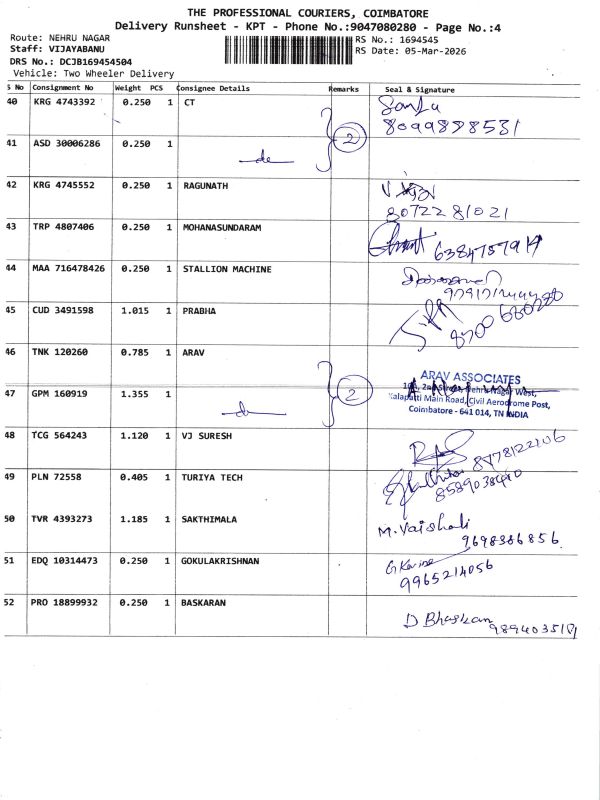 THE PROFESSIONAL COURIERS, COIMBATORE
Delivery Runsheet - KPT - Phone No.:9047080280 - Page No.:4
Route: NEHRU NAGAR
RS No.: 1694545
Staff: VIJAYABANU
RS Date: 05-Mar-2026
DRS No.: DCJB169454504
Vehicle: Two Wheeler Delivery
S No Consignment No Weight PCS Consignee Details Remarks Seal & Signature
40 KRG 4743392 0.250 1 CT
8099898531
41 ASD 30006286 0.250 1
2
42 KRG 4745552 0.250 1 RAGUNATH
80722 81021
43 TRP 4807406 0.250 1 MOHANASUNDARAM
44 MAA 716478426 0.250 1 STALLION MACHINE
45 CUD 3491598 1.015 1 PRABHA
46 TNK 120260 0.785 1 ARAV
ARAV ASSOCIATES
Nehru Nagar West,
Kalapatti Main Road, Civil Aerodrome Post,
Coimbatore - 641 014, TN INDIA
47 GPM 160919 1.355 1
2
48 TCG 564243 1.120 1 VJ SURESH
8778122106
49 PLN 72558 0.405 1 TURIYA TECH
50 TVR 4393273 1.185 1 SAKTHIMALA
M. Vaishali
9698386856
51 EDQ 10314473 0.250 1 GOKULAKRISHNAN
9965214056
52 PRO 18899932 0.250 1 BASKARAN
D Bhaskan